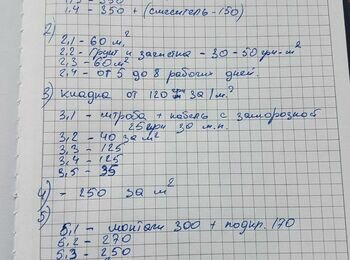 1.4 - 350 + (смеситель - 150)
2)
2,1 - 60 м²
2,2 - Грунт и зачистка - 30 - 50 грн - м²
2,3 - 60 м²
2,4 - от 5 до 8 рабочих дней.
3) Кладка от 120 грн за 1 м?
3,1 - штроба + кабель с
25 грн 30 м.п.
3,2 - 40 за м²
3,3 - 125
3,4 - 125
3,5 - 35
4) - 250 за м²
5)
5,1 - монтаж 300 + подкл. 170
5,2 - 270
5,3 - 250